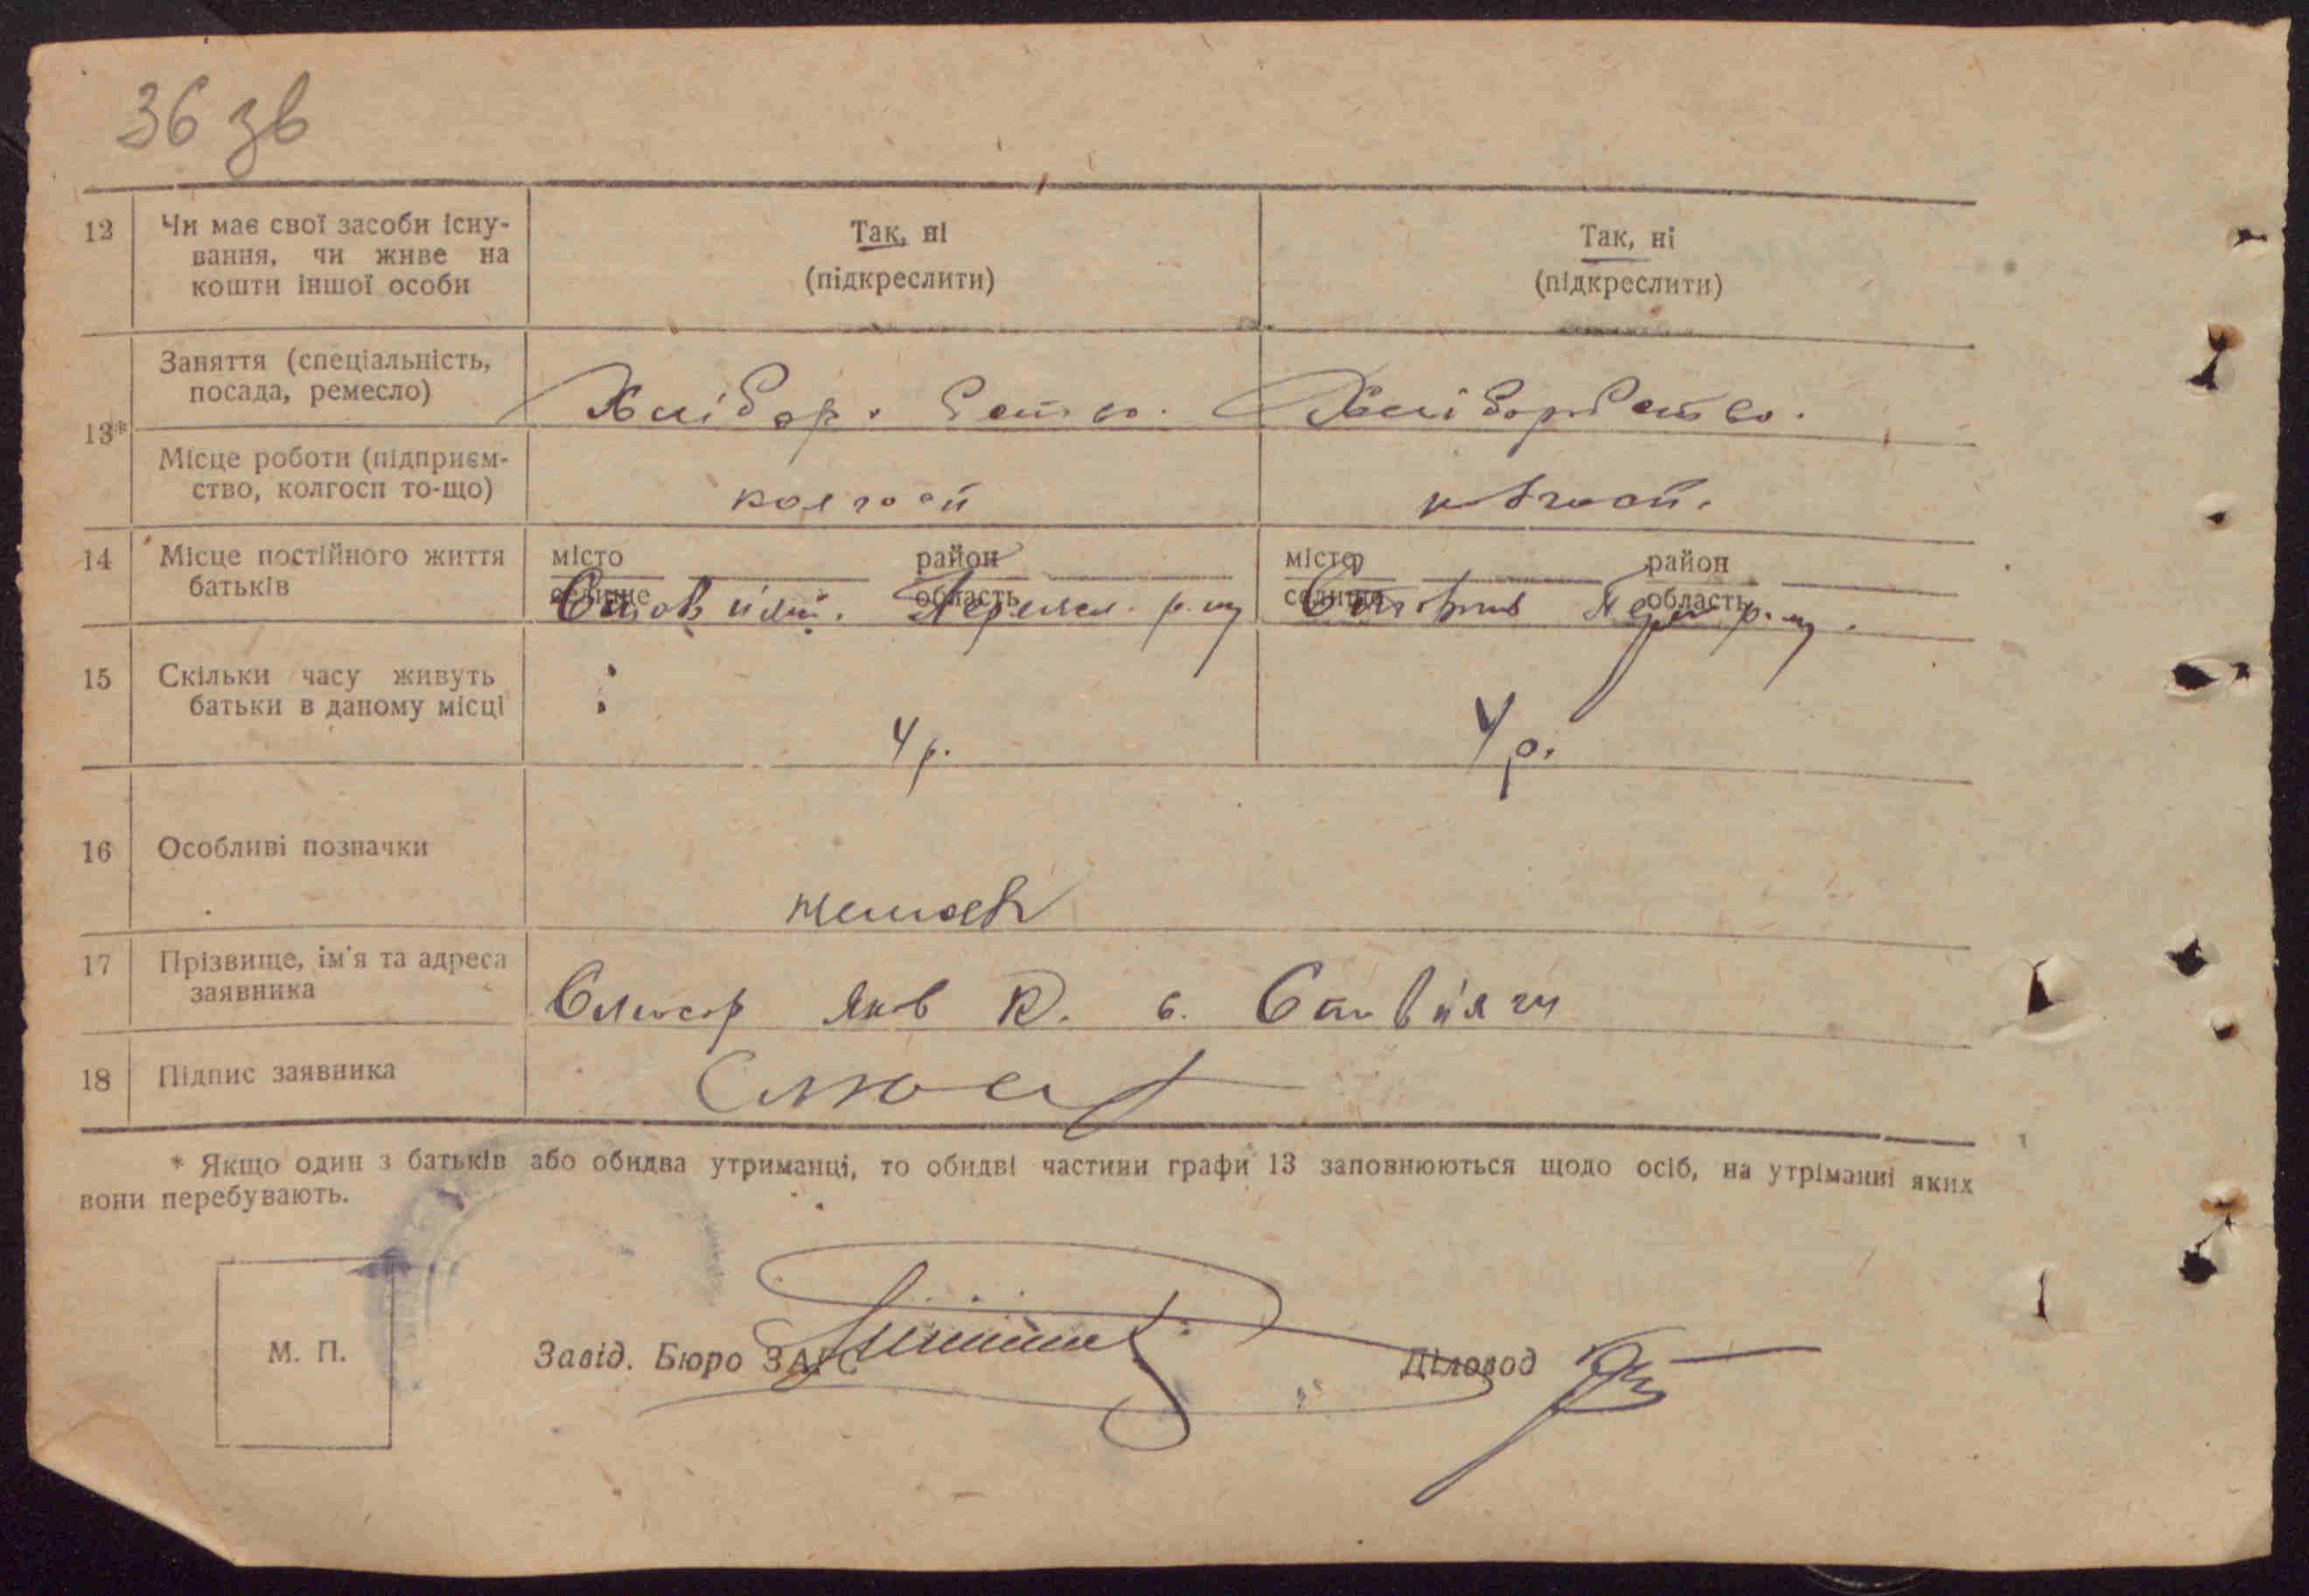 36 зв
12 Чи має свої засоби існу- Так, ні Так, ні
вання, чи живе на (підкреслити) (підкреслити)
кошти іншої особи
13* Заняття (спеціальність,
посада, ремесло) Хлібор. Хліборобство.
Місце роботи (підприєм-
ство, колгосп то-що) колгосп
14 Місце постійного життя місто район місто район
батьків селище область селище область
15 Скільки часу живуть
батьки в даному місці 4 р. 4 р.
16 Особливі позначки
17 Прізвище, ім'я та адреса
заявника Слюсар Яків К. с.
18 Підпис заявника Слюсар
* Якщо один з батьків або обидва утриманці, то обидві частини графи 13 заповнюються щодо осіб, на утріманні яких
вони перебувають.
М. П. Завід. Бюро ЗАГС Діловод